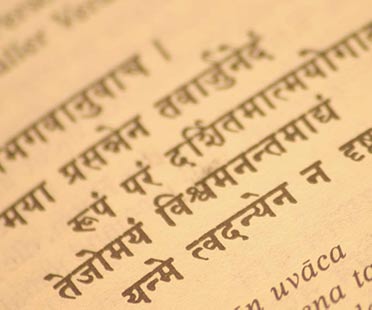 भगवानुवाच ।
मया प्रसन्नेन तवार्जुनेदं
रूपं परं दर्शितमात्मयोगा
तेजोमयं विश्वमनन्तमाद्यं
यन्मे त्वदन्येन न
uvāca